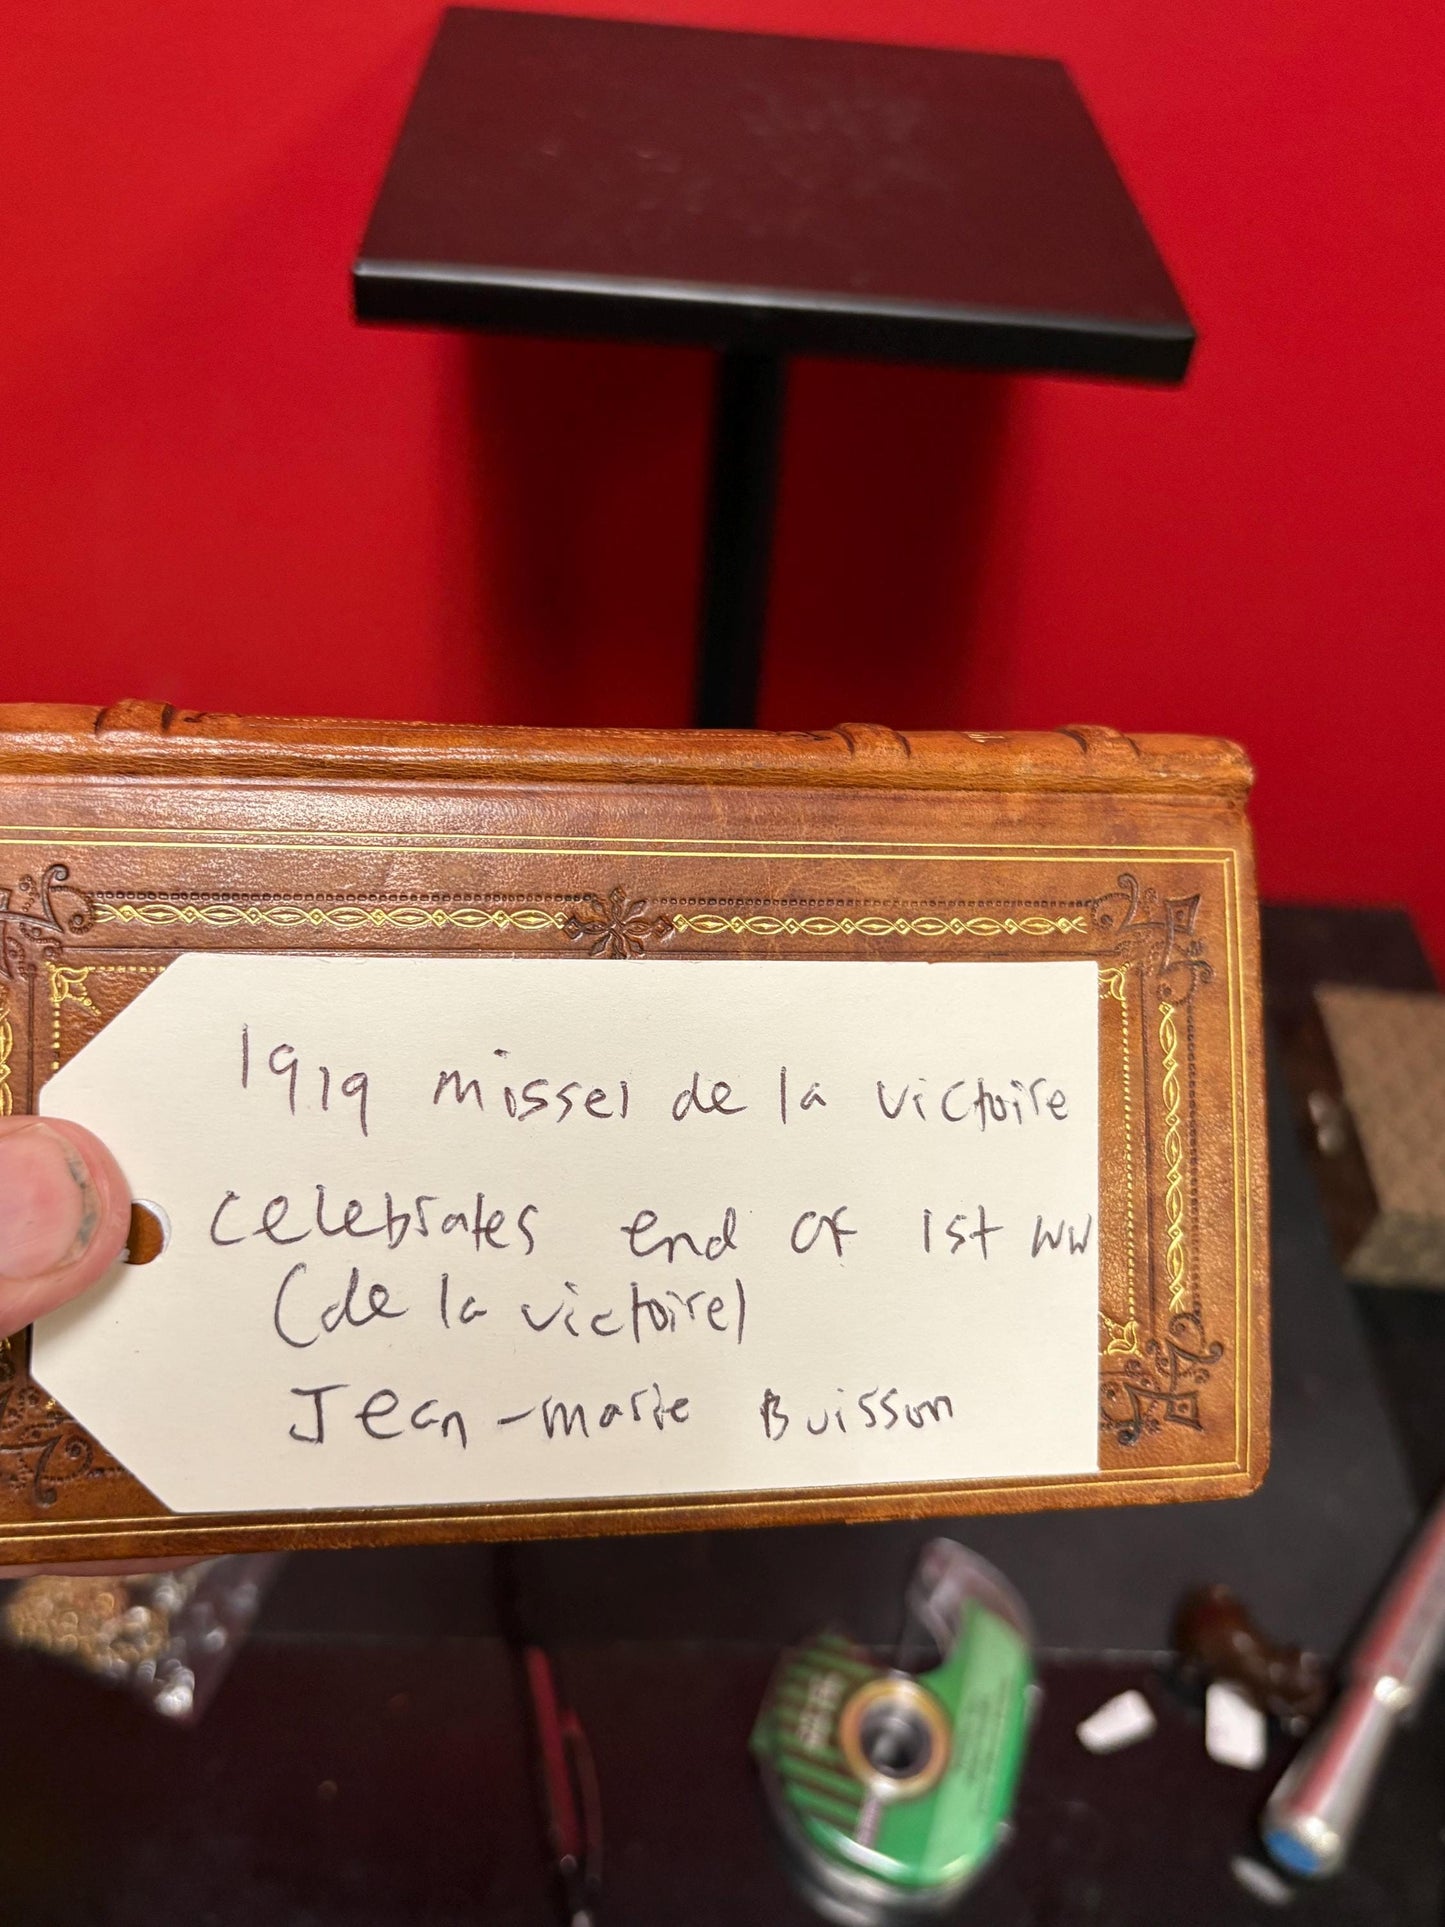 1919 missel de la victoire
celebrates end of 1st WW
(de la victoire)
Jean-marie Buisson